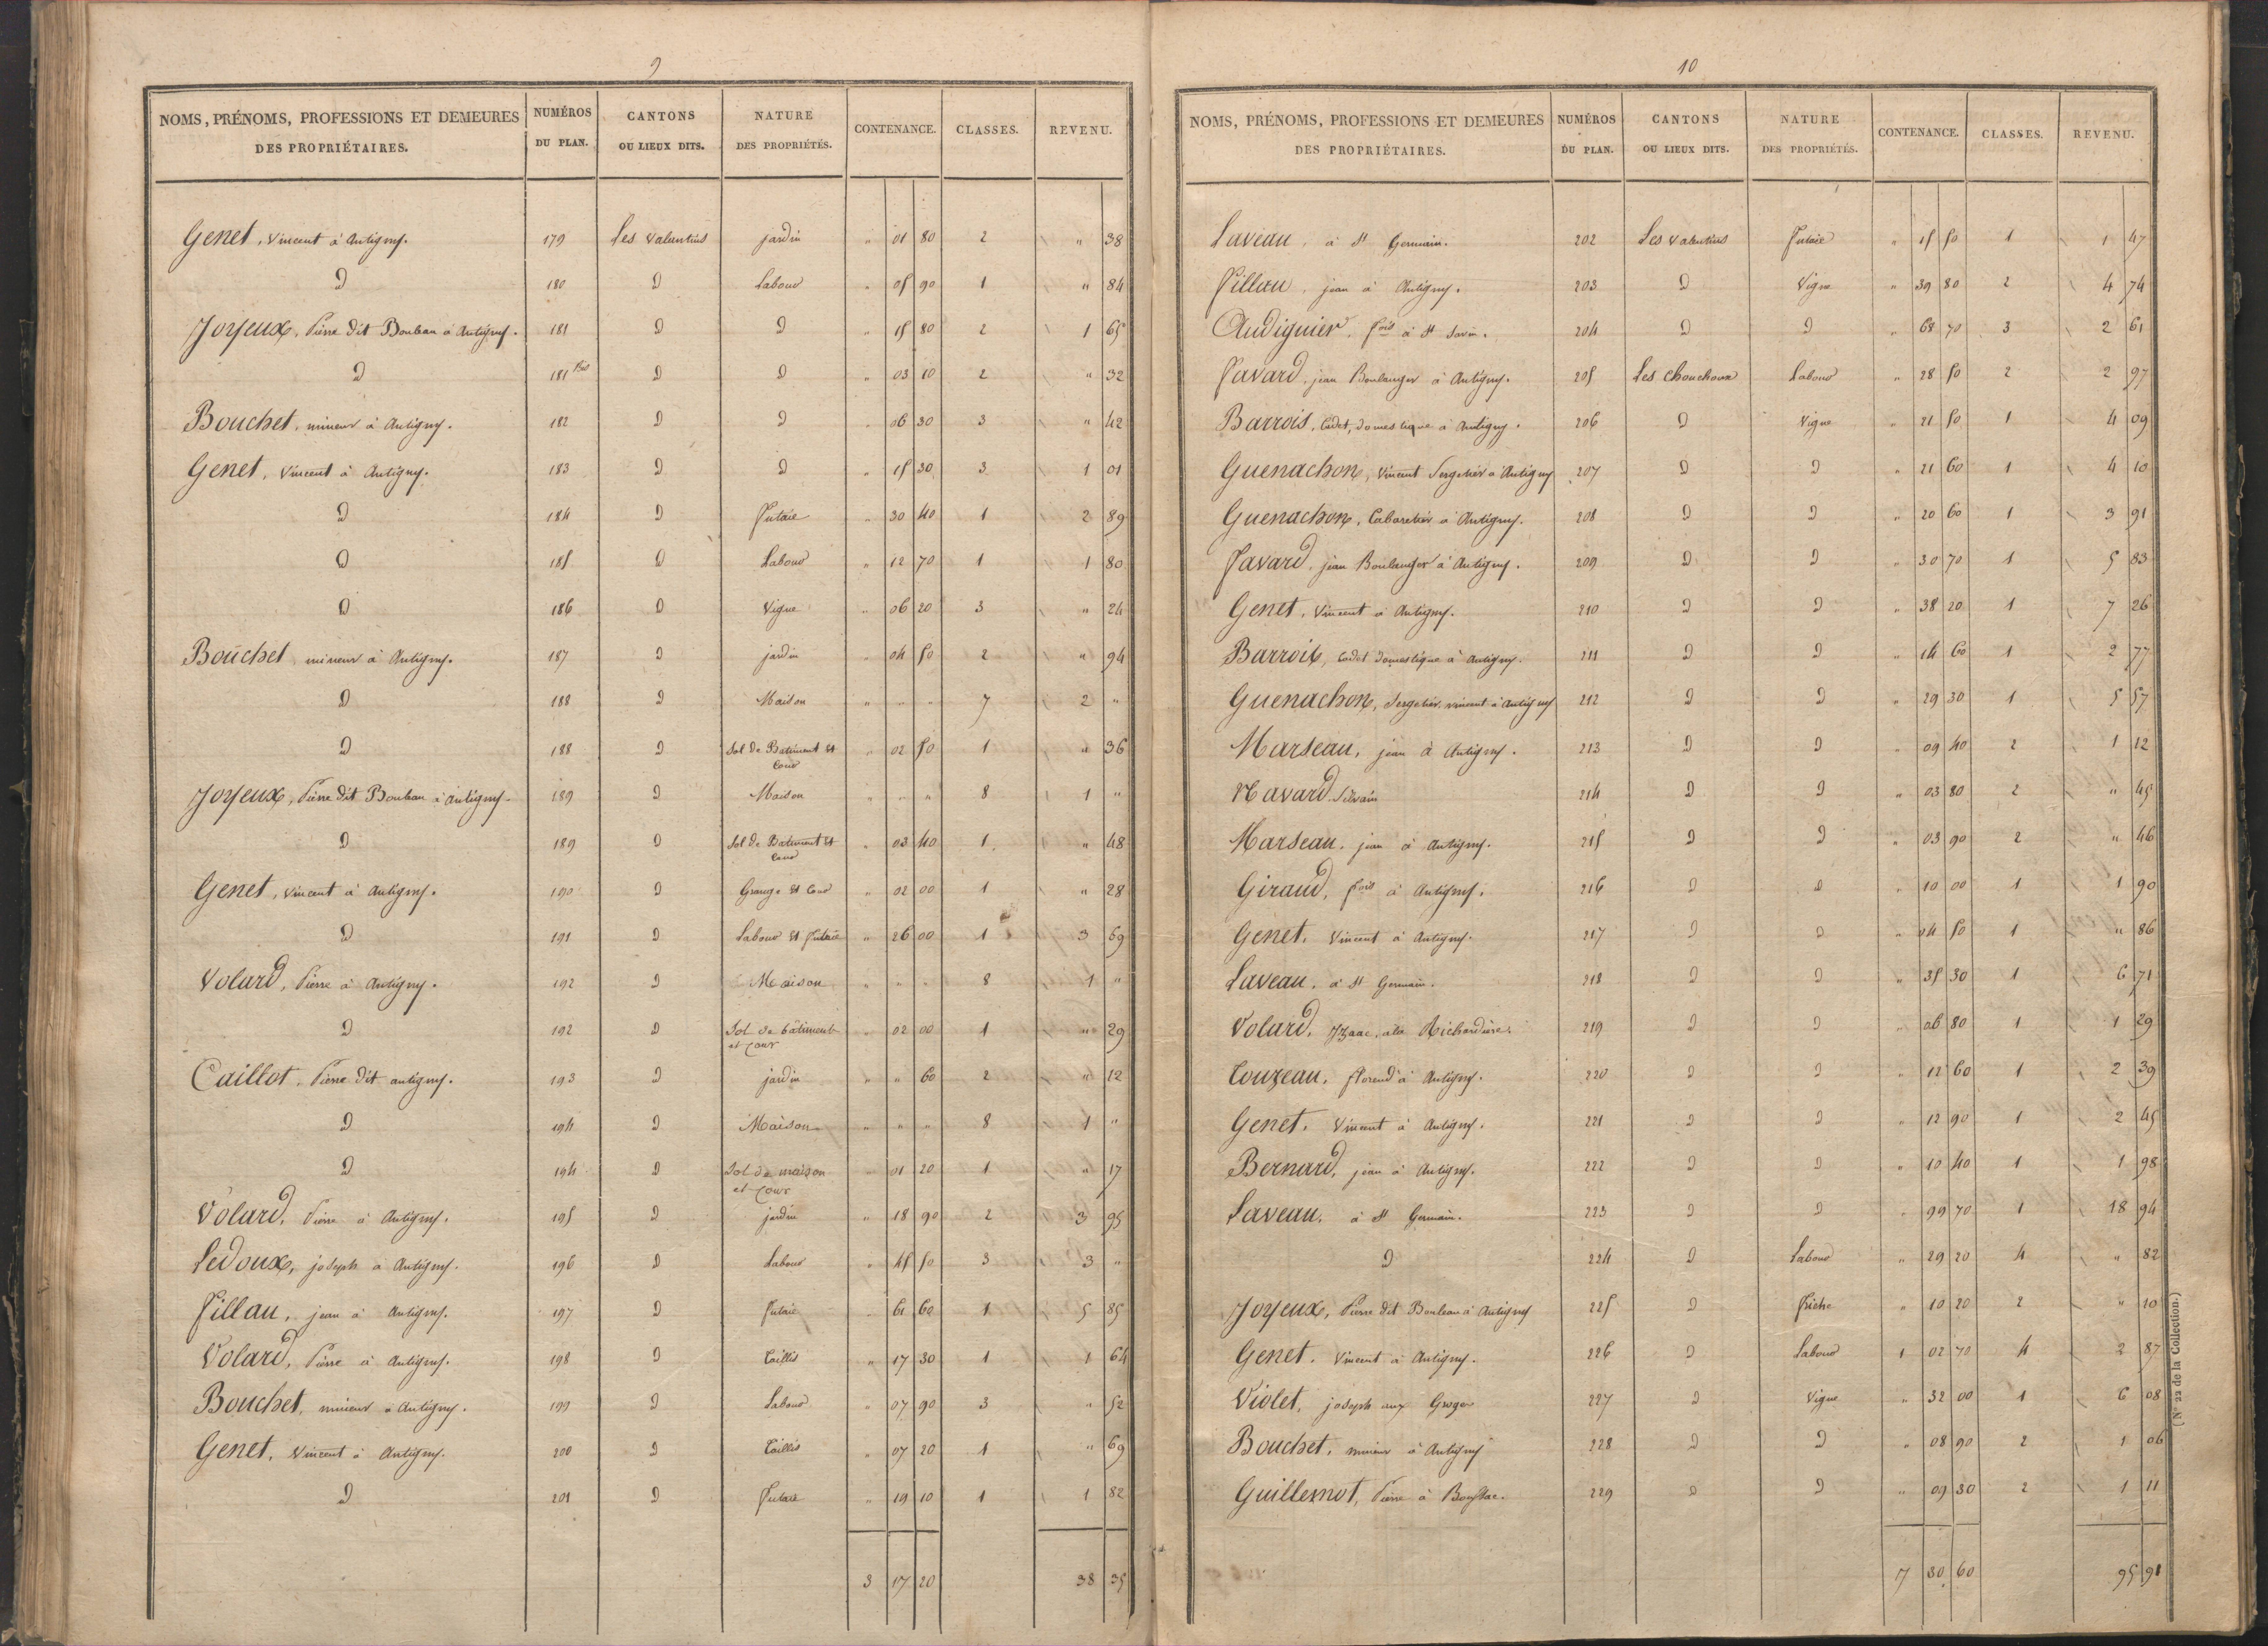 9
NOMS, PRÉNOMS, PROFESSIONS ET DEMEURES DES PROPRIÉTAIRES. NUMÉROS DU PLAN. CANTONS OU LIEUX DITS. NATURE DES PROPRIÉTÉS. CONTENANCE. CLASSES. REVENU.
Genet, Vincent à Antigny. 179 Les Valentins jardin " 01 80 2 " 38
D 180 D Labour " 05 90 1 " 84
Joyeux, Pierre dit Bouleau à Antigny. 181 D D " 15 80 2 1 65
D 181 Bis D D " 03 10 2 " 32
Bouchet, mineur à Antigny. 182 D D " 06 30 3 " 42
Genet, Vincent à Antigny. 183 D D " 15 30 3 1 01
D 184 D Futaie " 30 40 1 2 89
D 185 D Labour " 12 70 1 1 80
D 186 D Vigne " 06 20 3 " 24
Bouchet mineur à Antigny. 187 D jardin " 04 50 2 " 94
D 188 D Maison " " " 7 2 "
D 188 D Sol de Batiment et Cour " 02 50 1 " 36
Joyeux, Pierre dit Bouleau à Antigny. 189 D Maison " " " 8 1 "
D 189 D Sol de Batiment et Cour " 03 40 1 " 48
Genet, Vincent à Antigny. 190 D Grange et Cour " 02 00 1 " 28
D 191 D Labour et Futaie " 26 00 1 3 69
Volard, Pierre à Antigny. 192 D Maison " " " 8 1 "
D 192 D Sol de bâtiment et Cour " 02 00 1 " 29
Caillot, Pierre dit antigny. 193 D jardin " " 60 2 " 12
D 194 D Maison " " " 8 1 "
D 194 D Sol de maison et Cour " 01 20 1 " 17
Volard, Pierre à Antigny. 195 D jardin " 18 90 2 3 95
Ledoux, joseph à Antigny. 196 D Labour " 45 50 3 3 "
Fillau, jean à Antigny. 197 D Futaie " 61 60 1 5 85
Volard, Pierre à Antigny. 198 D Taillis " 17 30 1 1 64
Bouchet, mineur à Antigny. 199 D Labour " 07 90 3 " 52
Genet, Vincent à Antigny. 200 D Taillis " 07 20 1 " 69
D 201 D Futaie " 19 10 1 1 82
3 17 20 38 35
10
NOMS, PRÉNOMS, PROFESSIONS ET DEMEURES DES PROPRIÉTAIRES. NUMÉROS DU PLAN. CANTONS OU LIEUX DITS. NATURE DES PROPRIÉTÉS. CONTENANCE. CLASSES. REVENU.
Laveau, à St Germain. 202 Les Valentins Futaie " 15 50 1 1 47
Fillau, jean à Antigny. 203 D Vigne " 39 80 2 4 74
Audiguier, fois à St Savin. 204 D D " 68 70 3 2 61
Favard, jean Boulanger à Antigny. 205 Les Chouchoux Labour " 28 50 2 2 97
Barrois, Cadet, domestique à Antigny. 206 D Vigne " 21 50 1 4 09
Guenachon, Vincent Sergetier à Antigny 207 D D " 21 60 1 4 10
Guenachon, Cabaretier à Antigny. 208 D D " 20 60 1 3 91
Favard, jean Boulanger à Antigny. 209 D D " 30 70 1 5 83
Genet, Vincent à Antigny. 210 D D " 38 20 1 7 26
Barrois, Cadet domestique à Antigny. 211 D D " 14 60 1 2 77
Guenachon, Sergetier, vincent à Antigny 212 D D " 29 30 1 5 57
Marseau, jean à Antigny. 213 D D " 09 40 2 1 12
Navard Silvain 214 D D " 03 80 2 " 45
Marseau, jean à Antigny. 215 D D " 03 90 2 " 46
Giraud, fois à Antigny. 216 D D " 10 00 1 1 90
Genet, Vincent à Antigny. 217 D D " 04 50 1 " 86
Laveau, à St Germain. 218 D D " 35 30 1 6 71
Volard, Yzaac, ala Richardière. 219 D D " 06 80 1 1 29
Touzeau, florend à Antigny. 220 D D " 12 60 1 2 39
Genet, Vincent à Antigny. 221 D D " 12 90 1 2 45
Bernard, jean à Antigny. 222 D D " 10 40 1 1 98
Laveau, à St Germain. 223 D D " 99 70 1 18 94
D 224 D Labour " 29 20 4 " 82
Joyeux, Pierre dit Bouleau à Antigny 225 D friche " 10 20 2 " 10
Genet, Vincent à Antigny. 226 D Labour 1 02 70 4 2 87
Violet, joseph aux Groges 227 D Vigne " 32 00 1 6 08
Bouchet, mineur à Antigny 228 D D " 08 90 2 1 06
Guillemot, Pierre à 229 D D " 09 30 2 1 11
7 30 60 95 91
(N° 22 de la Collection.)